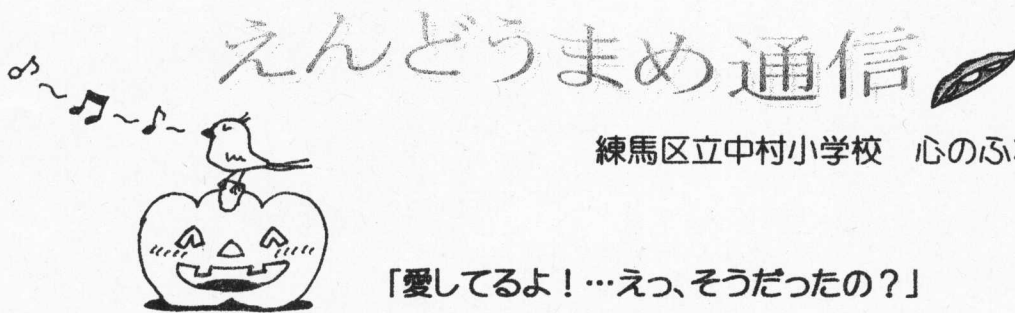 えんどうまめ通信
練馬区立中村小学校　心のふ
「愛してるよ！…えっ、そうだったの？」